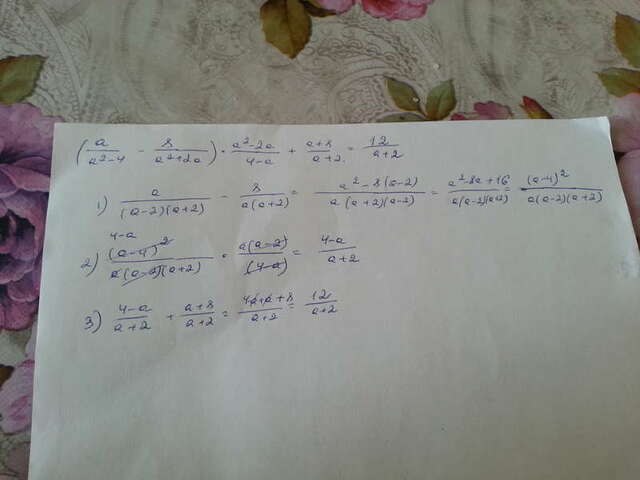 (a/(a²-4) - 8/(a²+2a)) · (a²-2a)/(4-a) + (a+8)/(a+2) = 12/(a+2)
1) a/((a-2)(a+2)) - 8/(a(a+2)) = (a²-8(a-2))/(a(a+2)(a-2)) = (a²-8a+16)/(a(a-2)(a+2)) = (a-4)²/(a(a-2)(a+2))
4-a
2) (a-4)²/(a(a-2)(a+2)) · a(a-2)/(4-a) = (4-a)/(a+2)
3) (4-a)/(a+2) + (a+8)/(a+2) = (4-a+a+8)/(a+2) = 12/(a+2)